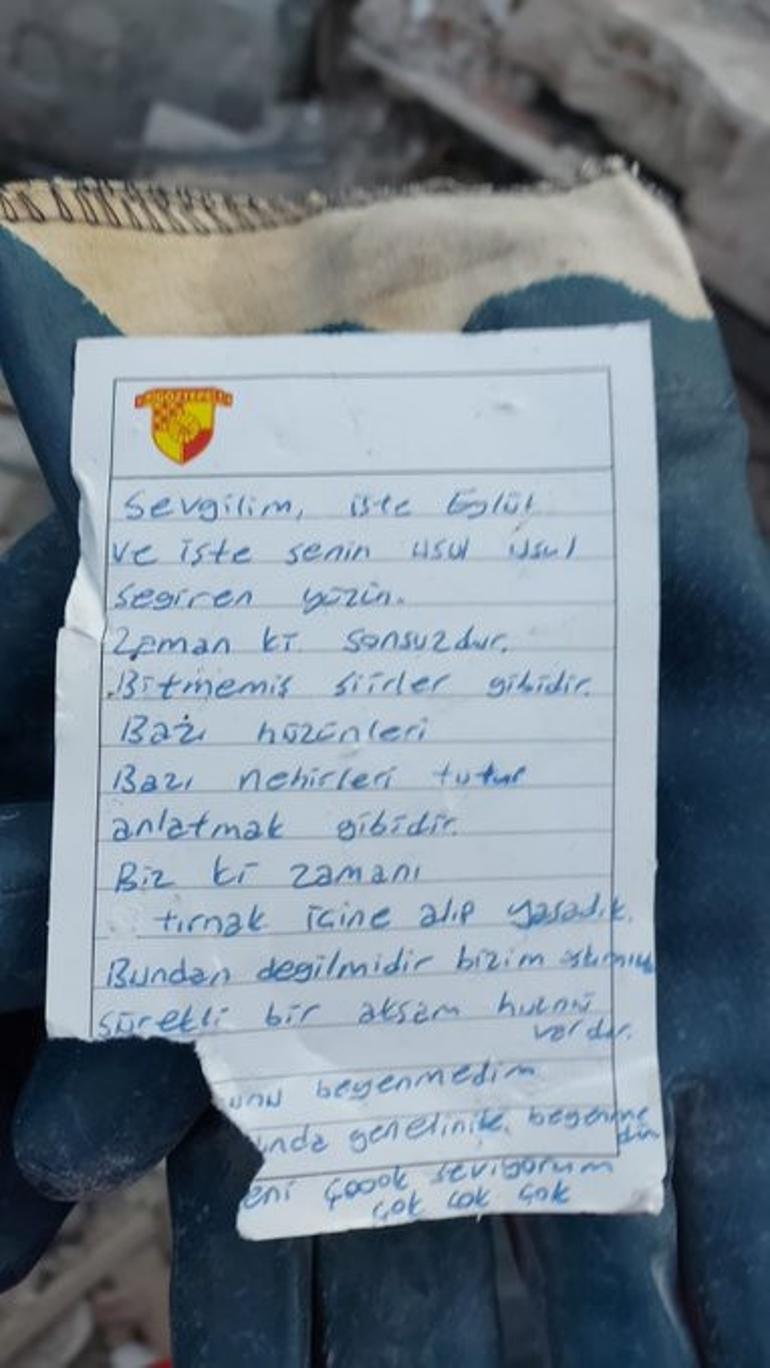 GÖZTEPE
Sevgilim, işte Eylül
ve işte senin usul usul
segiren yüzün.
Zaman ki sonsuzdur.
Bitmemiş şiirler gibidir.
Bazı hüzünleri
Bazı nehirleri tutup
anlatmak gibidir.
Biz ki zamanı
tırnak içine alıp yaşadık.
Bundan degilmidir bizim
sürekli bir akşam hüznü
vardır.
unu beyenmedim
unda genelinike beyenme
dim
eni Çoook seviyorum
çok çok çok